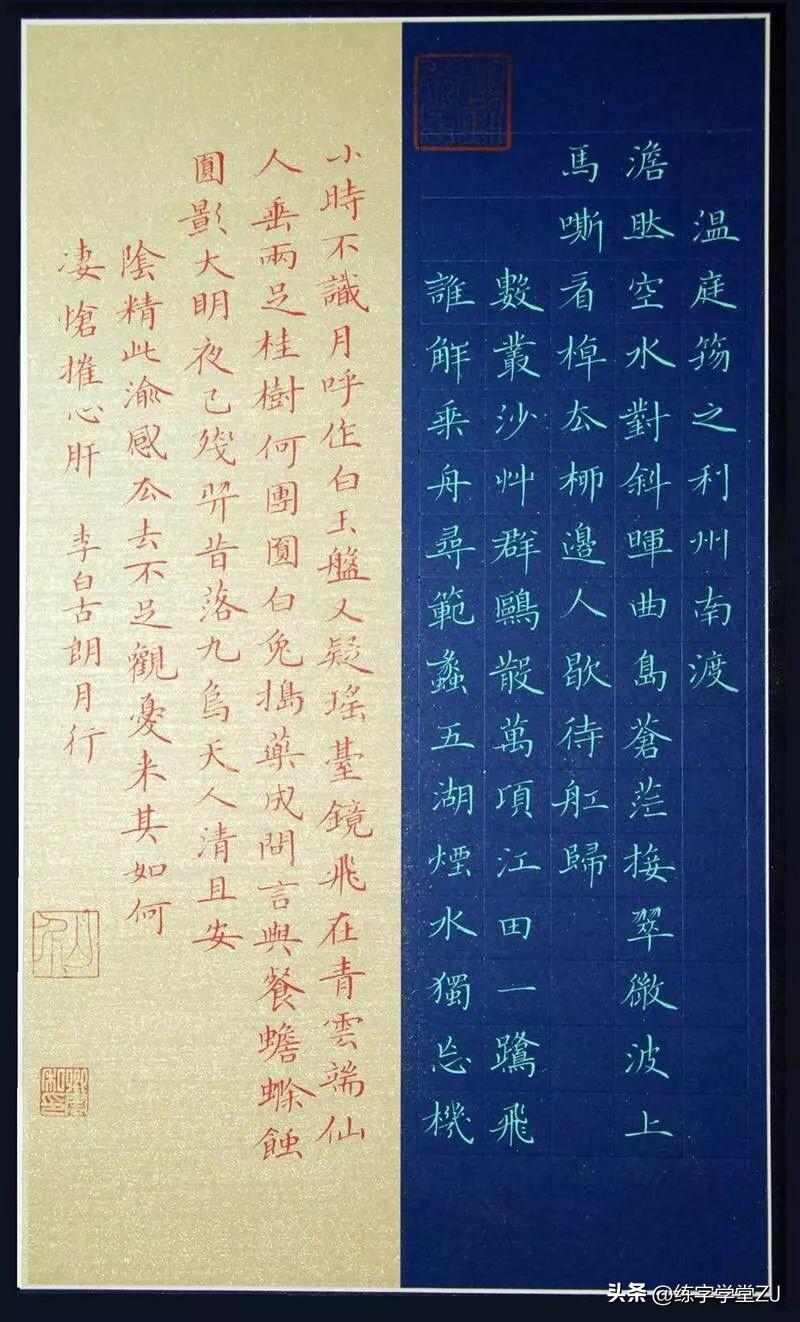 温庭筠之利州南渡
澹然空水對斜暉曲島蒼茫接翠微波上
馬嘶看棹厺柳邊人歇待舡歸
數叢沙艸群鷗散萬頃江田一鷺飛
誰解乘舟尋範蠡五湖煙水獨忘機
小時不識月呼作白玉盤又疑瑤臺鏡飛在青雲端仙
人垂兩足桂樹何團圓白兔搗藥成問言與餐蟾蜍蝕
圓影大明夜已殘羿昔落九烏天人清且安
陰精此渝感厺去不足觀憂来其如何
凄愴摧心肝 李白古朗月行
头条 @练字学堂ZJ